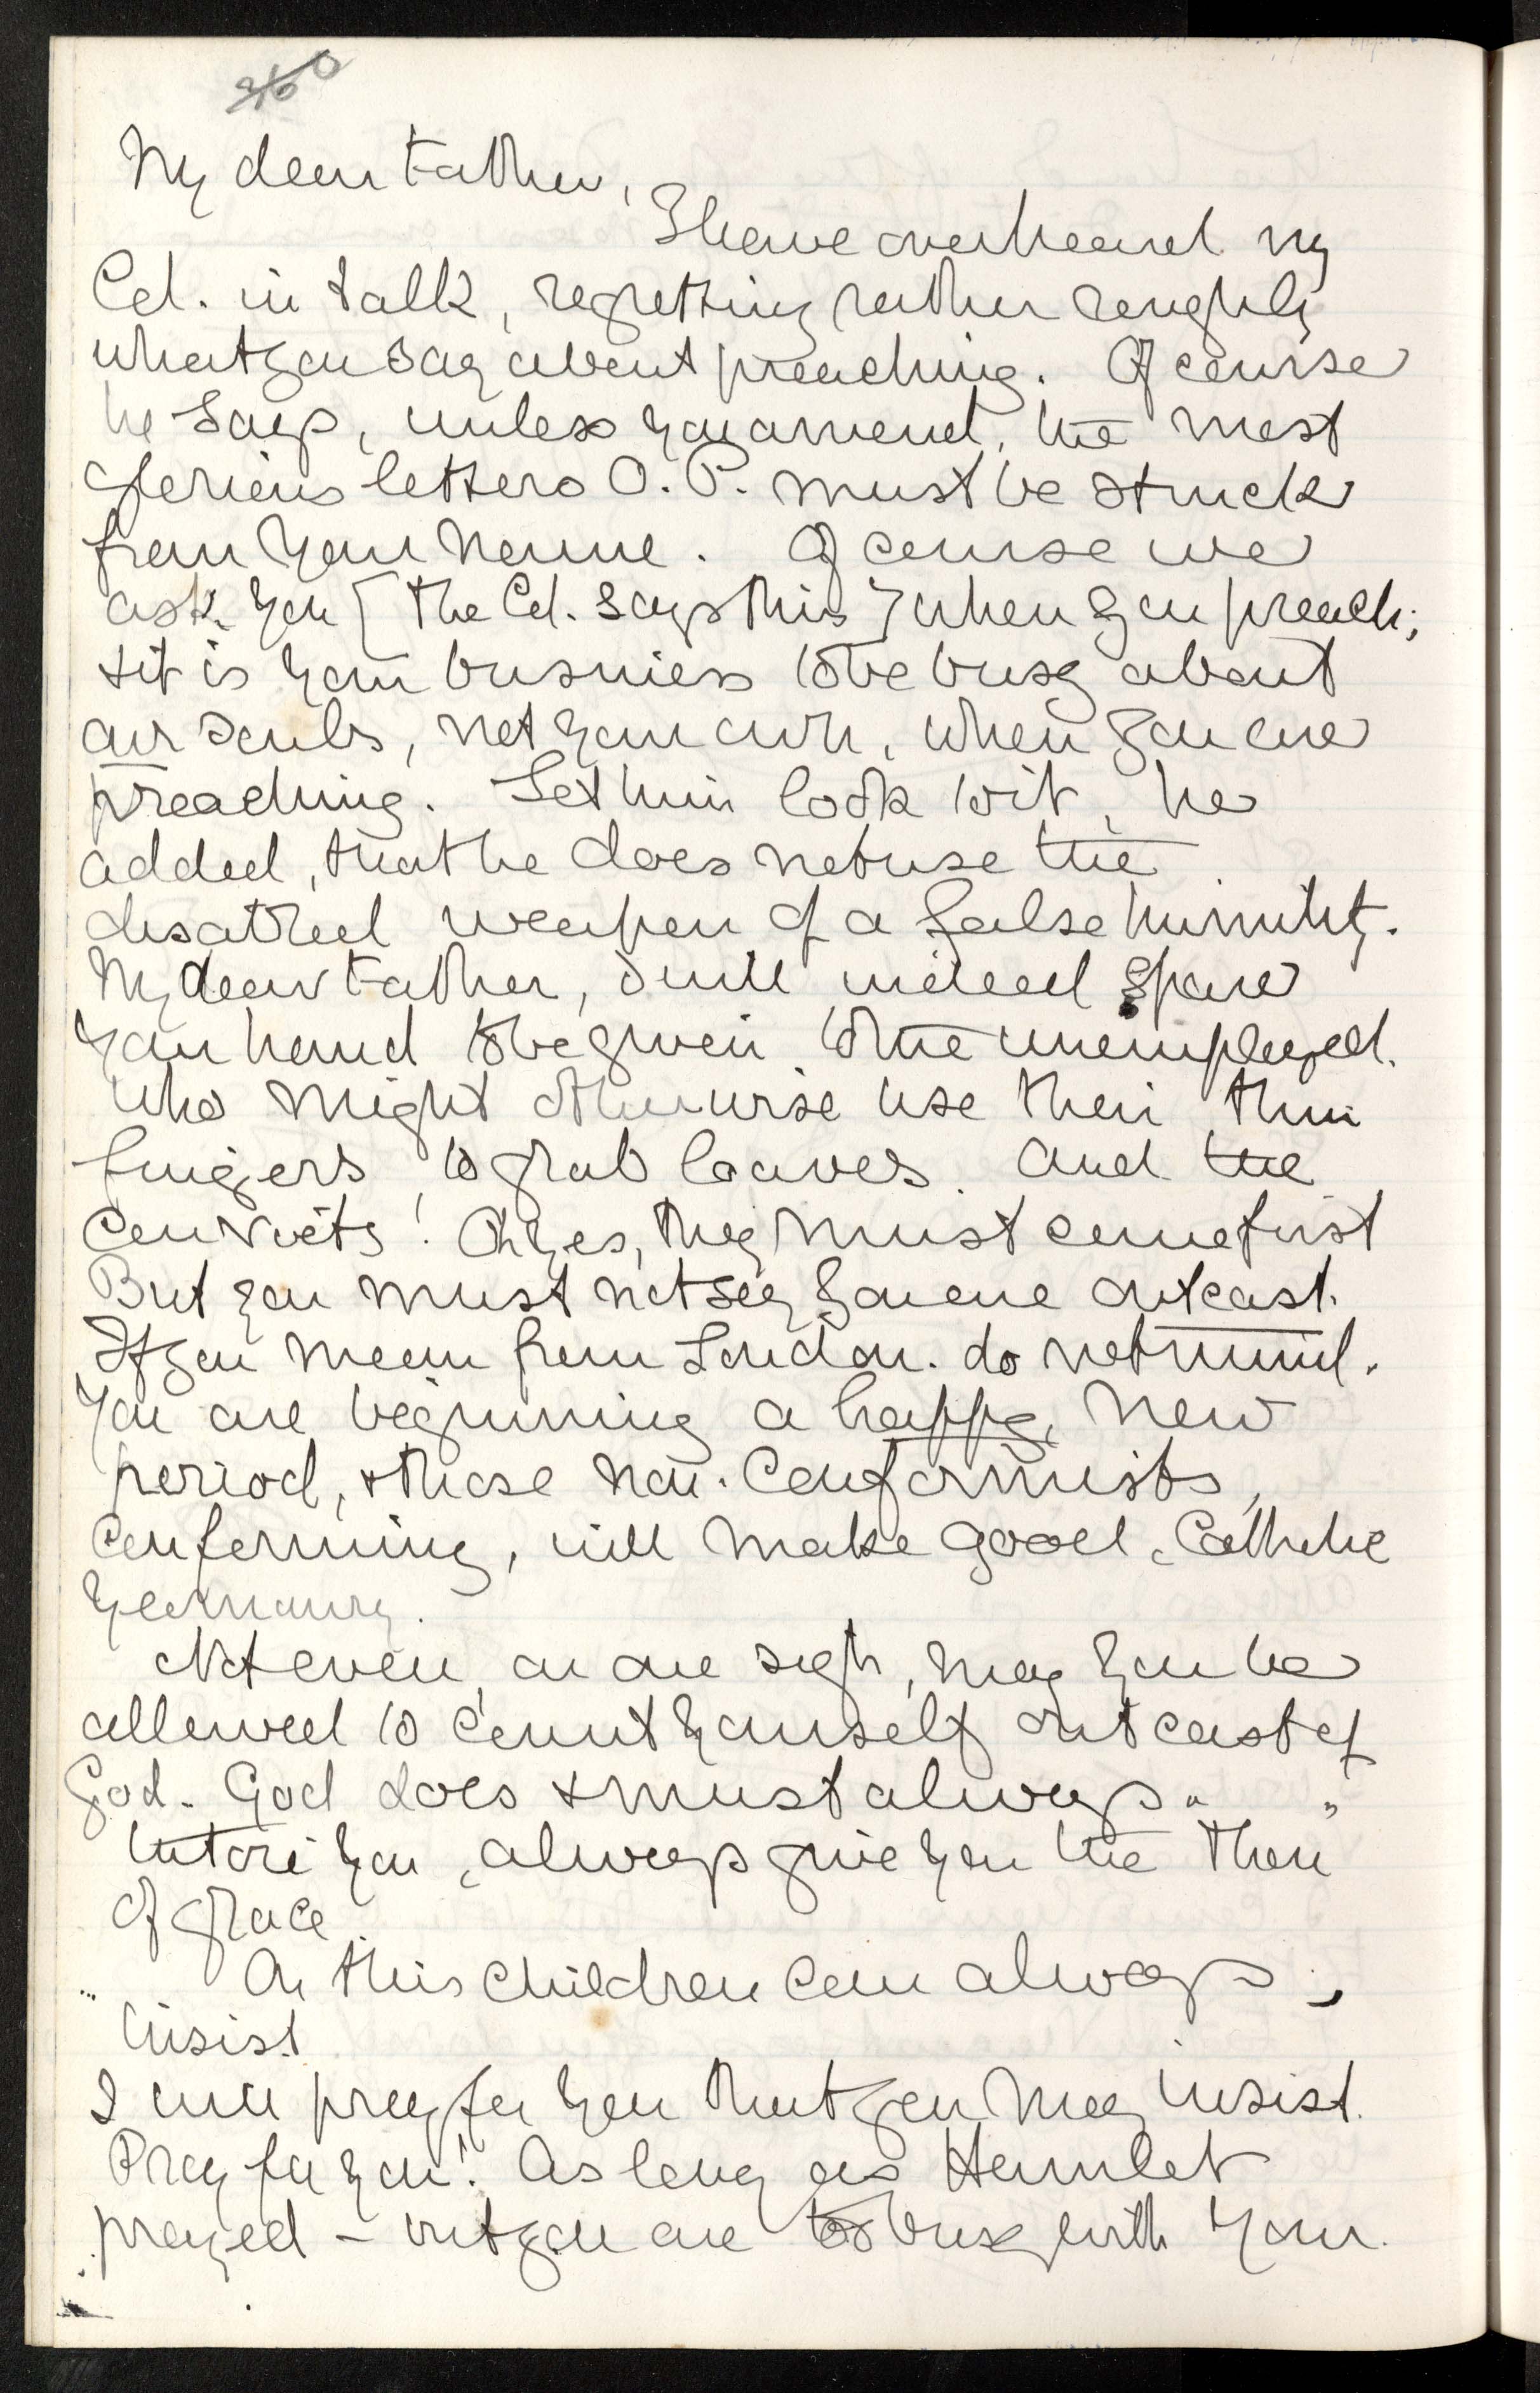 260
My dear Father,
I have overheard my
Cd. in talk, regretting rather roughly
what you say about preaching. Of course
he says, unless you amend, the most
glorious letters O.P. must be struck
from your name. Of course we
ask you [the Cd. says this] when you preach;
& it is your business to be busy about
our souls, not your own, when you are
preaching. Let him look to it, he
added, that he does not use the
weapon of a false humility.
My dear Father, I will indeed spare
your hand to be given to the unemployed.
who might otherwise use their thin
fingers to grab loaves. And the
Convicts! Oh yes, they must come first
But you must not say you are outcast.
If you mean from London. do not mind.
You are beginning a happy, new
period, & those Non-Conformists,
conforming, will make good, Catholic
yeomanry.
Not even, on one sigh, may you be
allowed to count yourself outcast of
God. God does & must always "
" you, always give you the
of grace
" On this children can always,
insist
I will pray for you that you may insist.
Pray for you! As long as Hamlet
prayed - but you are too busy with your